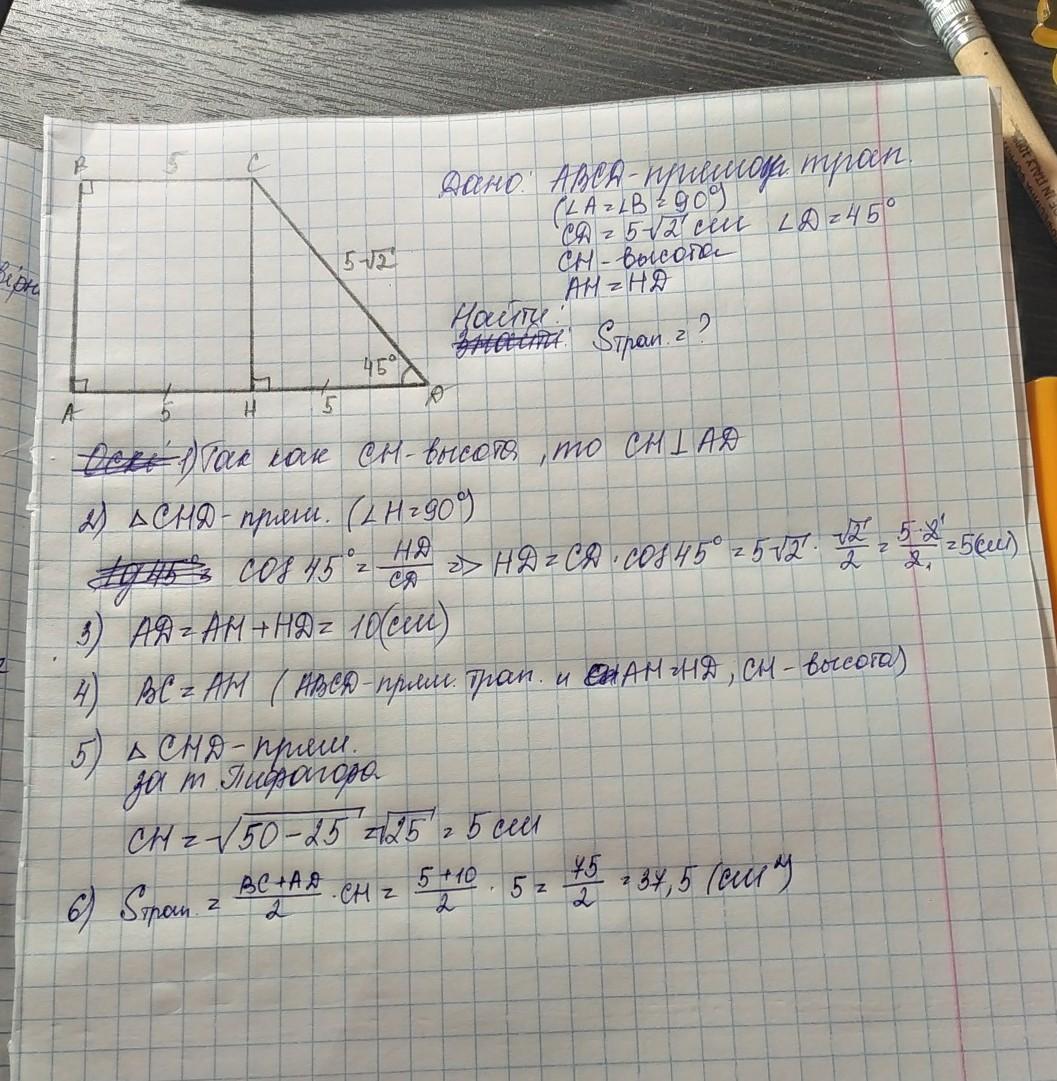 B 5 C
Дано: ABCD - прямоуг. трап.
(∠A=∠B=90°)
CD = 5√2 см ∠D=45°
CH - высота
AH = HD
5√2
Найти:
Sтрап. = ?
45°
A 5 H 5 D
1) Так как CH - высота, то CH⊥AD
2) △CHD - прям. (∠H=90°)
cos 45° = HD/CD => HD = CD · cos 45° = 5√2 · √2/2 = 5·2/2 = 5(см)
3) AD = AH + HD = 10(см)
4) BC = AH (ABCD - прям. трап. и AH=HD, CH - высота)
5) △CHD - прям.
за т. Пифагора
CH = √50-25 = √25 = 5 см
6) Sтрап. = BC+AD/2 · CH = 5+10/2 · 5 = 75/2 = 37,5 (см²)